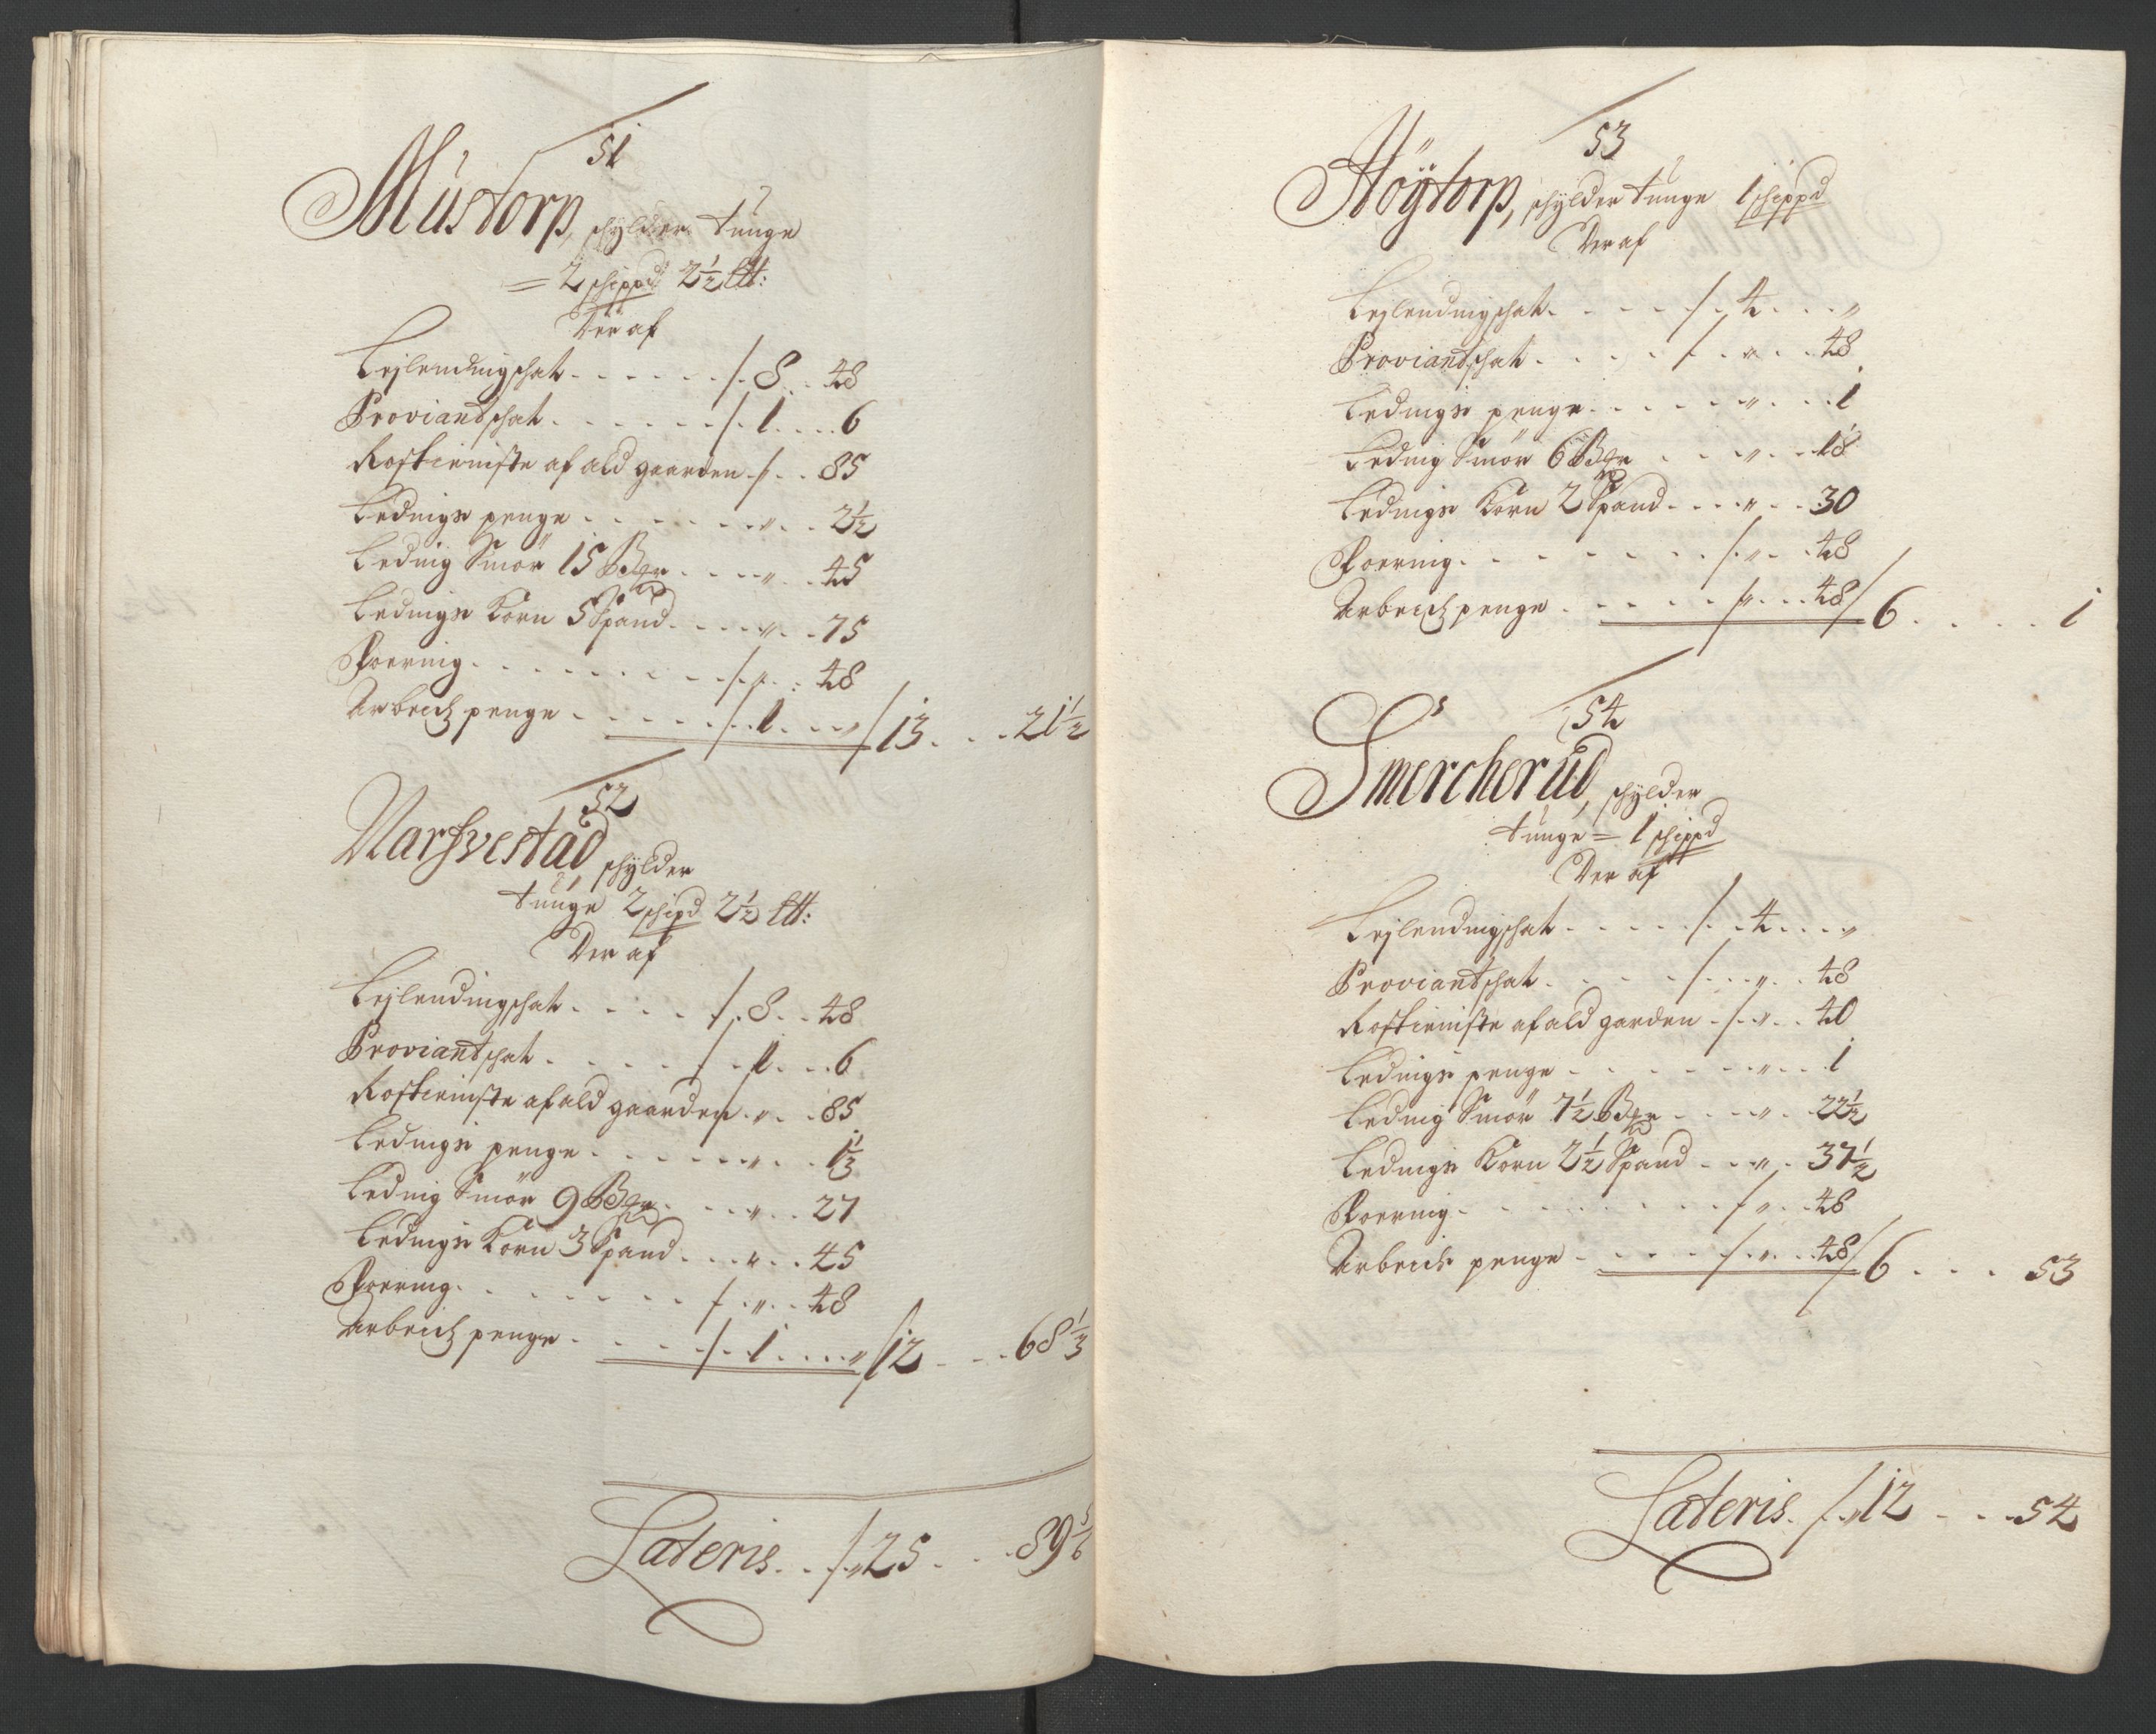 51
Mustorp, schylder tunge
= 2 schippd 2½ Ltt:
Der af
Lejlendingschat - - - - - - /. 8 . . 48
Proviantschat . - - - - - - /. 1 . . . . 6
Rostieniste af ald gaarden . /. . . 85
Ledings penge - - - - - - - " - . . 2½
Leding Smør 15 Bgr - - - - " . . 45
Ledings Korn 5 Spand - - - - " . - 75
Foering - - - - - - - - - /. " . : 48
Arbeids penge - - - - - - /. 1 . . . " / 13 . . . 21½
52
Narfvestad schylder
tunge 2 schipd 2½ Ltt:
Der af
Lejlendingschat . - - - - /. 8 . . 48
Proviantschat - - - - - / . 1 . . . 6
Rostieniste af ald gaarden . " . . 85
Ledings penge - - - - - - " . . 1⅓
Leding Smør 9 Bgr - - - " . . 27
Ledings Korn 3 Spand - - - " . . 45
Foering . - - - - - - - /. " . . 48
Arbeids penge - - - - /. 1 . . . . " / 12 . - . 68⅓
Lateris . . /. " 25 - . . 89⅚
53
Høytorp, schylder tunge 1 schippd
Der af
Lejlendingschat . - - - - /. 4 . . . "
Proviantschat . - - - - /. " . . . 48
Ledings penge - - - - - - " . . . . 1
Leding Smør 6 Bgr - - - " . - 18
Ledings Korn 2 Spand - - - - " . . 30
Foering - - - - - - - - /. " . . 48
Arbeids penge - - - - - /. " . . . 48 / 6 . . . . . 1
54
Smercherud, schylder
tunge = 1 schippd
Der af
Lejlendingschat . - - - - /. . 4 . . . . "
Proviantschat . - - - - /. . . " . . 48
Rostieniste af ald garden . /. . " . . . 40
Ledings penge - - - - - - - " . . . 1
Leding Smør 7½ Bgr - - - - " . . 22½
Ledings Korn 2½ Spand - - - " . . 37½
Foering - - - - - - - - - /. " . . . 48
Arbeids penge - - - - - /. . " . . . 48 / 6 . . . 53
Lateris . /. " 12 - . . 54